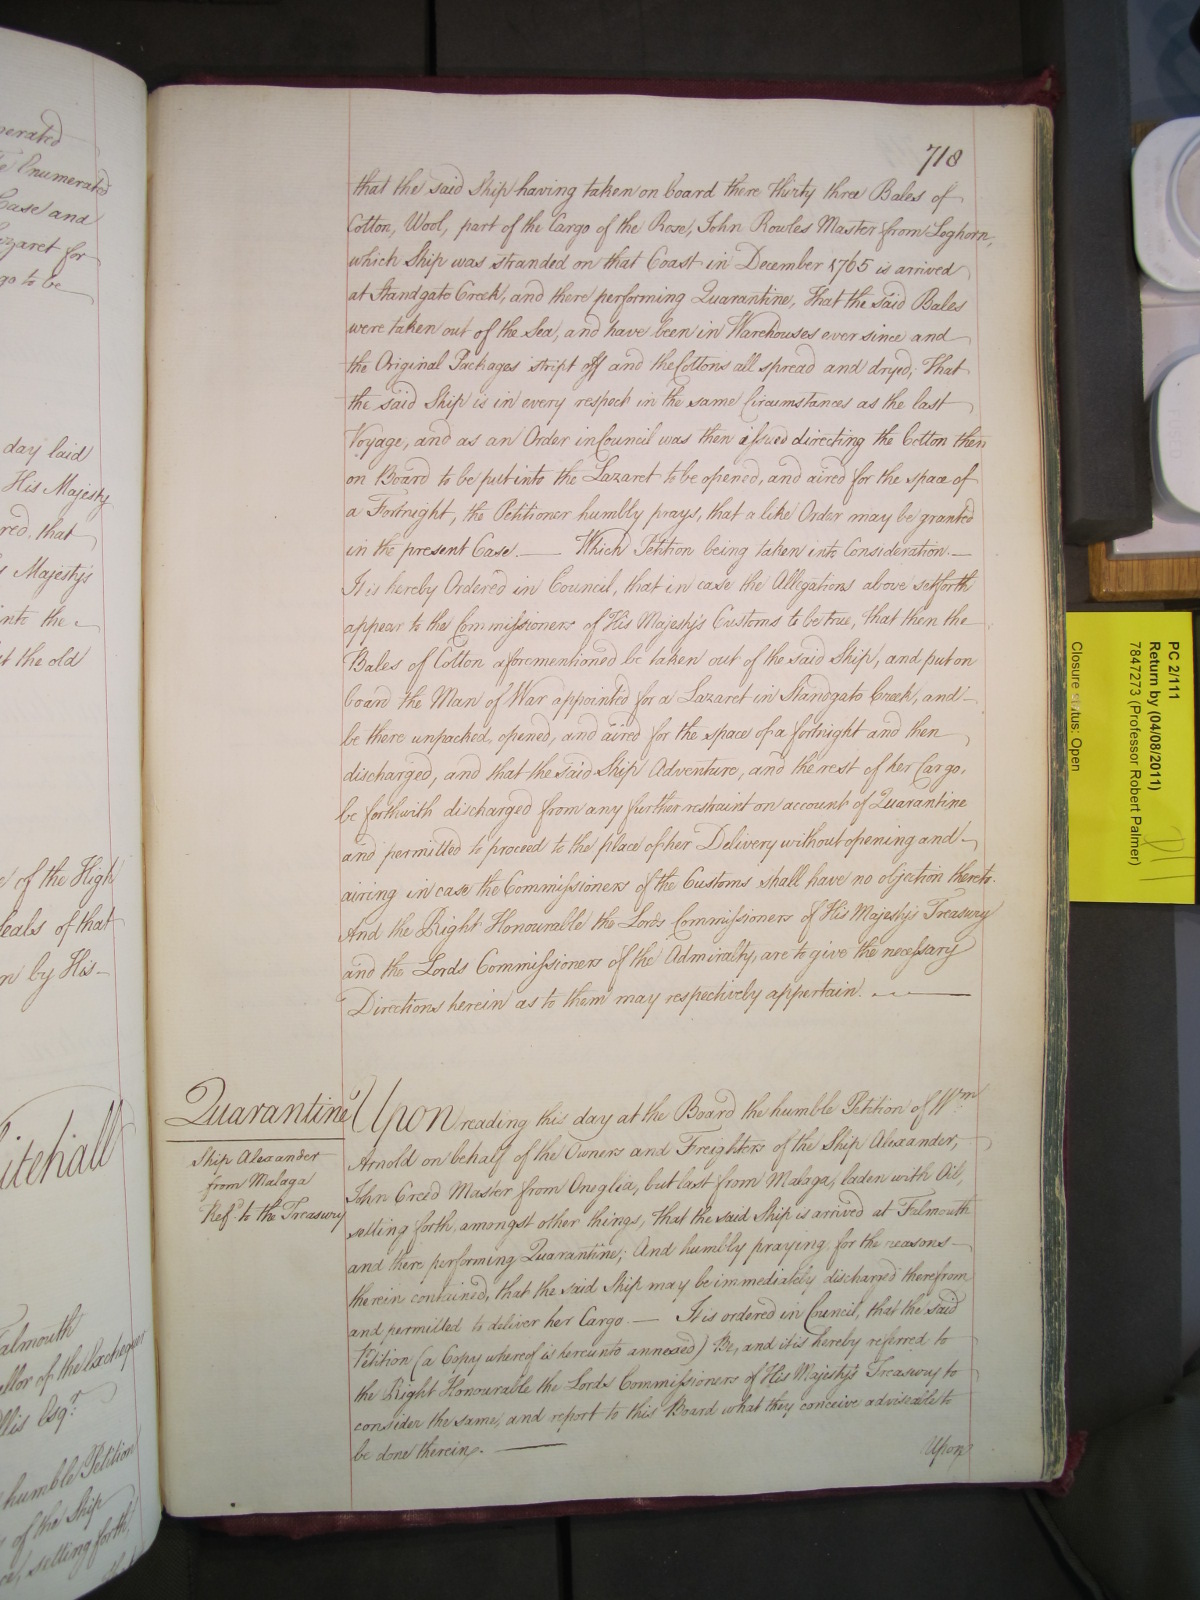 718
that the said Ship having taken on board there thirty three Bales of
Cotton, Wool, part of the Cargo of the Rose, John Rowles Master from Leghorn,
which Ship was stranded on that Coast in December 1765 is arrived
at Standgate Creek, and there performing Quarantine, That the said Bales
were taken out of the Sea, and have been in Warehouses ever since and
the Original Packages stript off and the Cottons all spread and dryed; That
the said Ship is in every respect in the same Circumstances as the last
Voyage, and as an Order in Council was then issued directing the Cotton then
on Board to be put into the Lazaret to be opened, and aired for the space of
a Fortnight, the Petitioner humbly prays, that a like Order may be granted
in the present Case. — Which Petition being taken into Consideration. —
It is hereby Ordered in Council, that in case the Allegations above setforth
appear to the Commissioners of His Majesty's Customs to be true, that then the
Bales of Cotton aforementioned be taken out of the said Ship, and put on
board the Man of War appointed for a Lazaret in Standgate Creek, and
be there unpacked, opened, and aired for the space of a fortnight and then
discharged, and that the said Ship Adventure, and the rest of her Cargo,
be forthwith discharged from any further restraint on account of Quarantine
and permitted to proceed to the place of her Delivery without opening and
airing in case the Commissioners of the Customs shall have no objection thereto.
And the Right Honourable the Lords Commissioners of His Majesty's Treasury
and the Lords Commissioners of the Admiralty, are to give the necessary
Directions herein as to them may respectively appertain. —
Quarantine
Ship Alexander
from Malaga
Ref.d to the Treasury
Upon reading this day at the Board the humble Petition of Wm
Arnold on behalf of the Owners and Freighters of the Ship Alexander,
John Creed Master from Oneglia, but last from Malaga, laden with Oil,
setting forth, amongst other things, that the said Ship is arrived at Falmouth
and there performing Quarantine; And humbly praying for the reasons
therein contained, that the said Ship may be immediately discharged therefrom
and permitted to deliver her Cargo — It is ordered in Council, that the said
Petition (a Copy whereof is hereunto annexed) Be, and it is hereby referred to
the Right Honourable the Lords Commissioners of His Majesty's Treasury to
consider the same, and report to this Board what they conceive adviseable to
be done therein. —
Upon
Enumerated
Case and
for
go to be
day laid
His Majesty
that
Majesty's
into the
the old
of the High
of that
by His
Falmouth
of the Exchequer
Ellis Esqr.
humble Petition
of the Ship
setting forth,
PC 2/111
Return by (04/08/2011)
7847273 (Professor Robert Palmer)
Closure status: Open